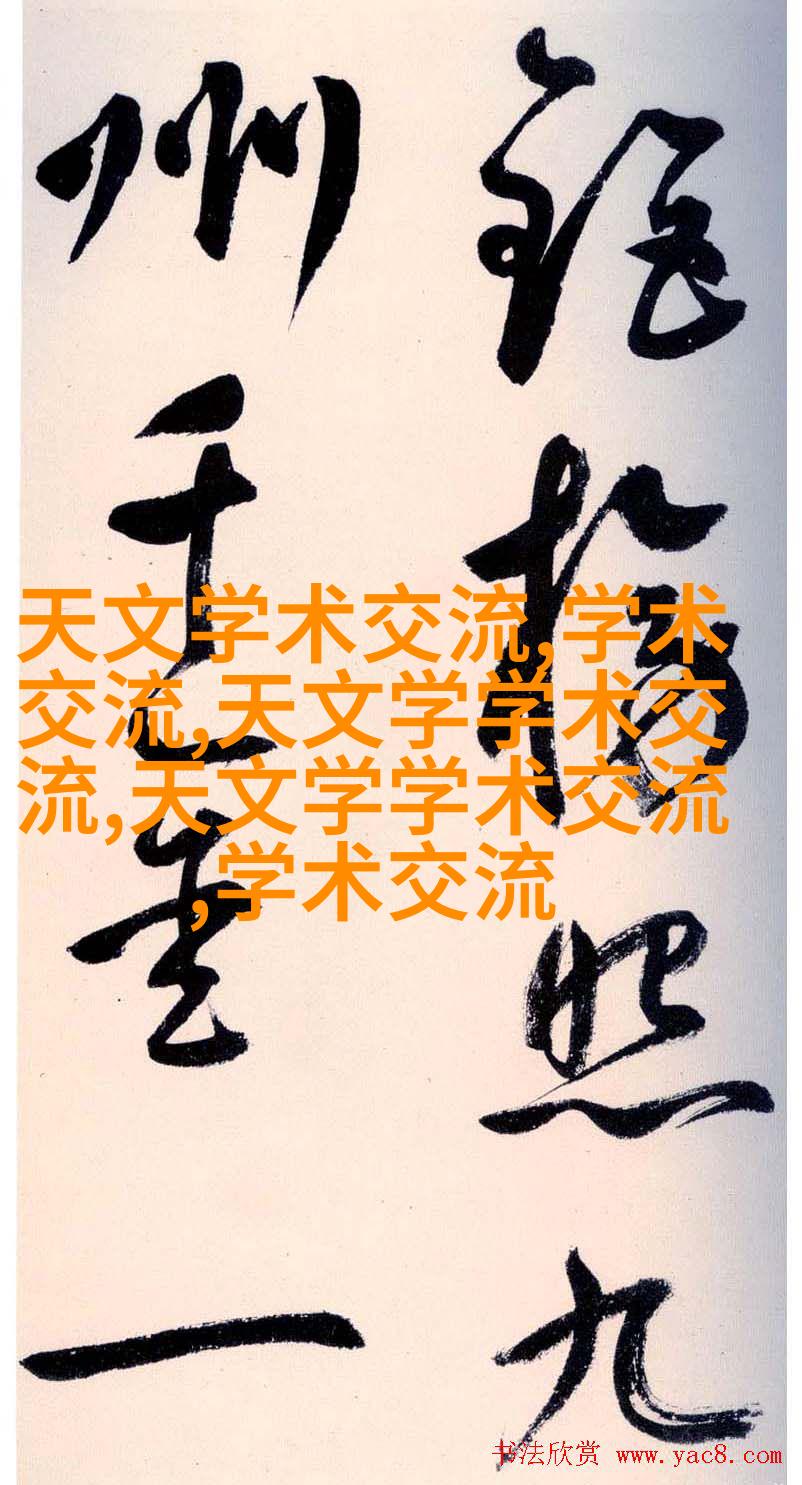 照九
州千一
天文学术交流,学术
交流,天文学学术交
流,天文学学术交流
,学术交流
书法欣赏 www.yac8.com